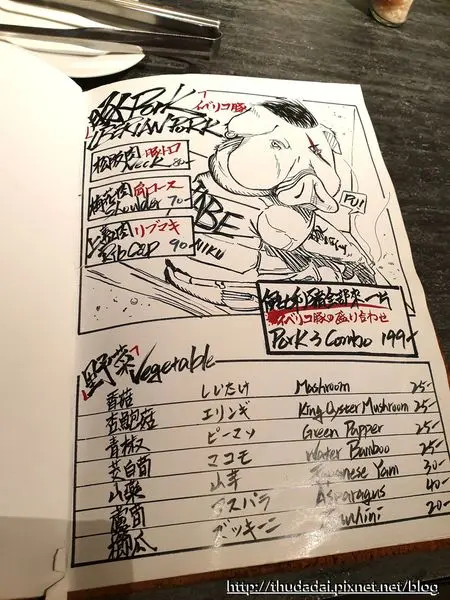 Pork イベリコ豚
IBERIAN PORK
松阪肉 豚トロ
Neck 80-
梅花肉 肩ロース
Shoulder 70-
上蓋肉 リブマキ
RibCap 90-
NIKU
PU!
伊比利豬全部來一片
イベリコ豚の盛り合わせ
Pork 3 Combo 199-
野菜 Vegetable
香菇 しいたけ Mashroom 25-
杏鮑菇 エリンギ King Oyster Mushroom 25-
青椒 ピーマン Green Papper 25-
茭白筍 マコモ Water Bamboo 25-
山藥 山芋 Japanese Yam 30-
蘆筍 アスパラ Asparagus 40-
櫛瓜 ズッキーニ Zucchini 20-
http://thudadai.pixnet.net/blog